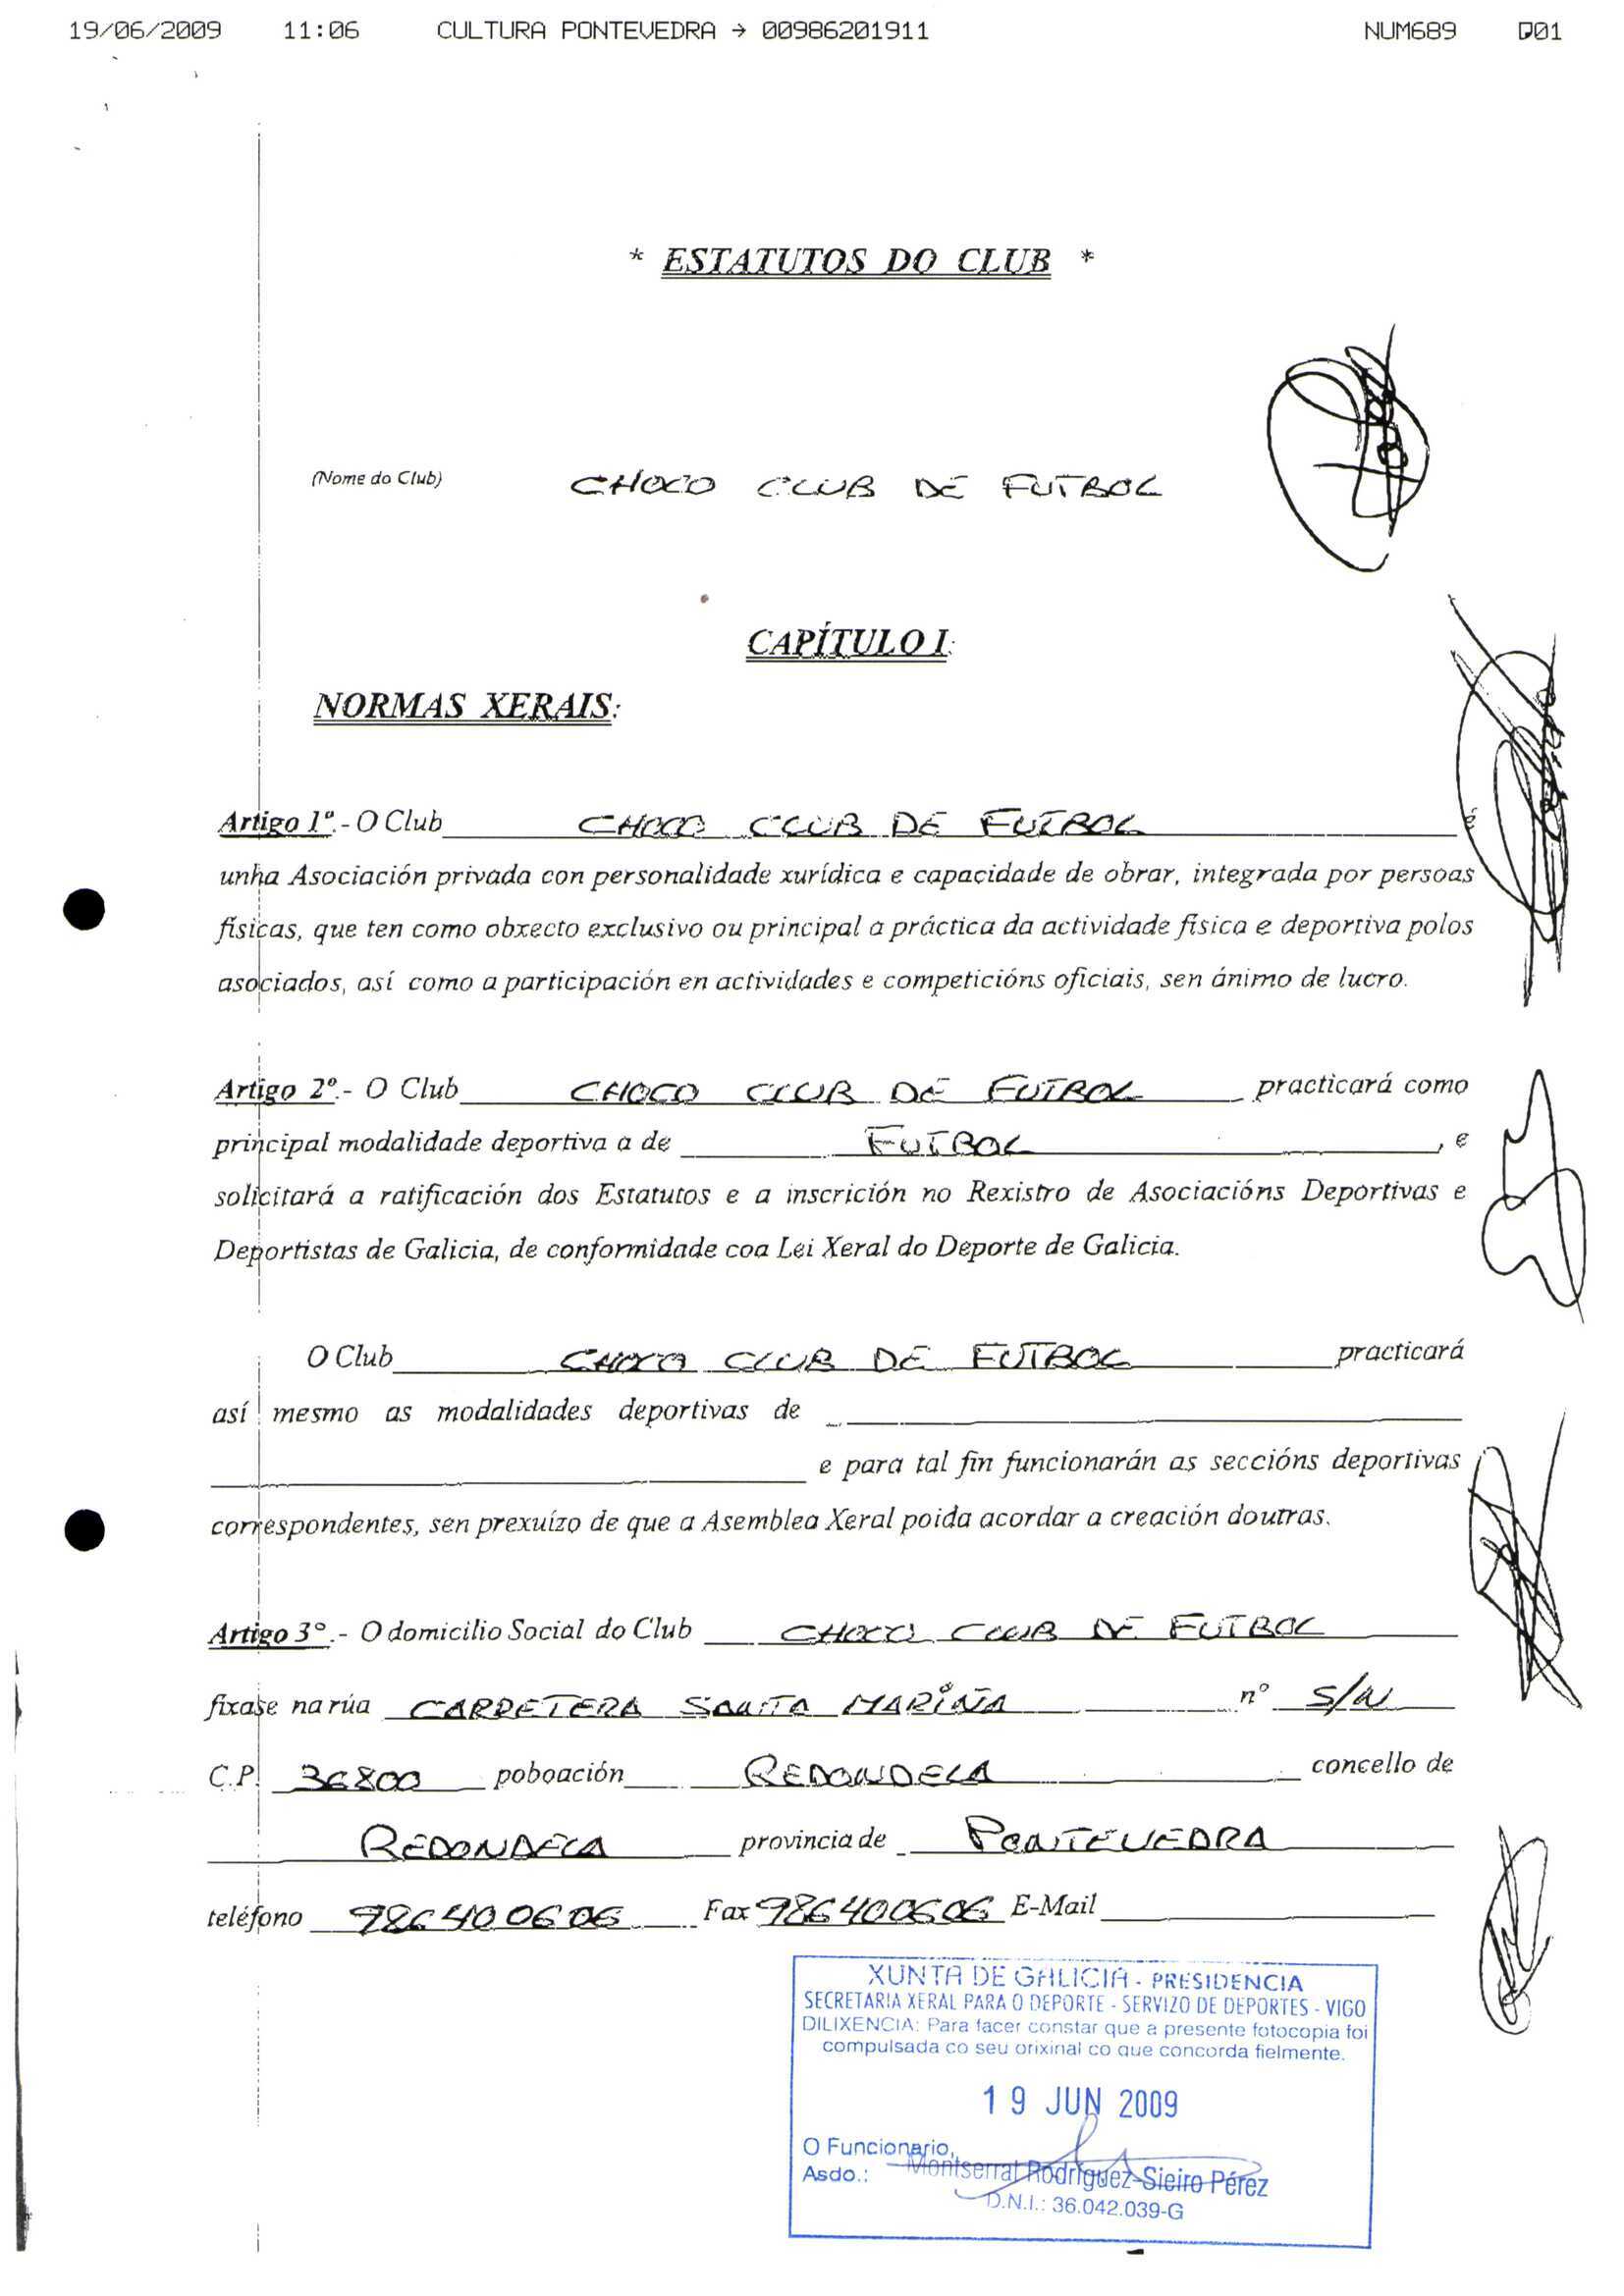 19/06/2009 11:06 CULTURA PONTEVEDRA → 00986201911 NUM689 D01
* ESTATUTOS DO CLUB *
(Nome do Club) CHOCO CLUB DE FUTBOL
CAPÍTULO I:
NORMAS XERAIS:
Artigo 1º.- O Club CHOCO CLUB DE FUTBOL é
unha Asociación privada con personalidade xurídica e capacidade de obrar, integrada por persoas
físicas, que ten como obxecto exclusivo ou principal a práctica da actividade física e deportiva polos
asociados, así como a participación en actividades e competicións oficiais, sen ánimo de lucro.
Artigo 2º.- O Club CHOCO CLUB DE FUTBOL practicará como
principal modalidade deportiva a de FUTBOL, e
solicitará a ratificación dos Estatutos e a inscrición no Rexistro de Asociacións Deportivas e
Deportistas de Galicia, de conformidade coa Lei Xeral do Deporte de Galicia.
O Club CHOCO CLUB DE FUTBOL practicará
así mesmo as modalidades deportivas de
e para tal fin funcionarán as seccións deportivas
correspondentes, sen prexuízo de que a Asemblea Xeral poida acordar a creación doutras.
Artigo 3º.- O domicilio Social do Club CHOCO CLUB DE FUTBOL
fixase na rúa CARRETERA SANTA MARIÑA nº S/N
C.P. 36800 poboación REDONDELA concello de
REDONDELA provincia de PONTEVEDRA
teléfono 986400606 Fax 986400606 E-Mail
XUNTA DE GALICIA - PRESIDENCIA
SECRETARIA XERAL PARA O DEPORTE - SERVIZO DE DEPORTES - VIGO
DILIXENCIA: Para facer constar que a presente fotocopia foi
compulsada co seu orixinal co que concorda fielmente.
19 JUN 2009
O Funcionario,
Asdo.: Montserrat Rodríguez-Sieiro Pérez
D.N.I.: 36.042.039-G